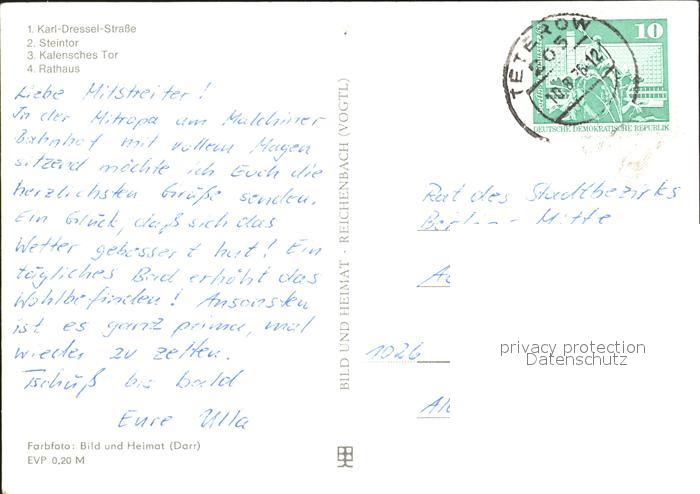 1. Karl-Dressel-Straße
2. Steintor
3. Kalensches Tor
4. Rathaus
Liebe Mitstreiter!
In der Mitropa am Malchiner
Bahnhof mit vollem Magen
sitzend möchte ich Euch die
herzlichsten Grüße senden.
Ein Glück, daß sich das
Wetter gebessert hat! Ein
tägliches Bad erhöht das
Wohlbefinden! Ansonsten
ist es ganz prima, mal
wieder zu zelten.
Tschüß bis bald
Eure Ulla
Farbfoto: Bild und Heimat (Darr)
EVP 0,20 M
BILD UND HEIMAT · REICHENBACH (VOGTL)
TETEROW
205
10
DEUTSCHE DEMOKRATISCHE REPUBLIK
Rat des Stadtbezirks
Berlin - Mitte
1026
privacy protection
Datenschutz